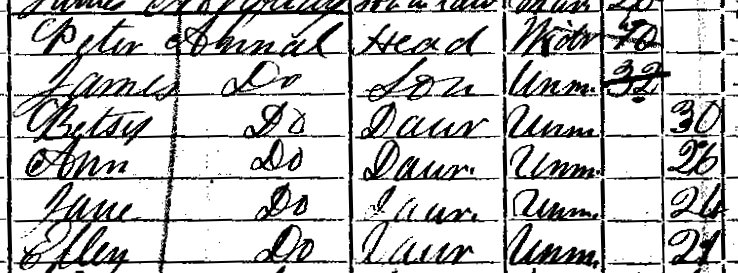 Peter Ahnal Head Widr 70
James Do Son Unm. 32
Betsy Do Daur Unm. 30
Ann Do Daur. Unm. 26
Jane Do Daur. Unm. 24
Ellen Do Daur Unm. 21